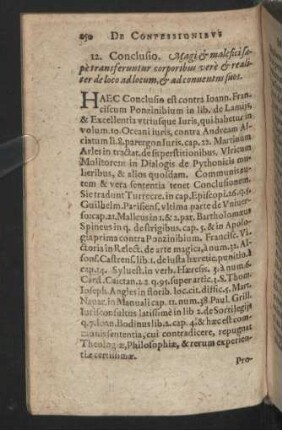 250 DE CONFESSIONIBVS
12. Conclusio. Magi & malefici sæ-
pè transferuntur corporibus verè & reali-
ter de loco ad locum, & ad conuentus suos.
HAEC Conclusio est contra Ioann. Fran-
ciscum Ponzinibium in lib. de Lamijs,
& Excellentia vtriusque Iuris, qui habetur in
volum. 10. Oceani iuris, contra Andream Al-
ciatum li. 8. parergon Iuris, cap. 22. Martinum
Arles in tractat. de superstitionibus, Vlricum
Molitorem in Dialogis de Pythonicis mu-
lieribus, & alios quosdam. Communis au-
tem & vera sententia tenet Conclusionem.
Sic tradunt Turrecre. in cap. Episcopi. 26. q. 5.
Guilhelm. Parisiens. vltima parte de Vniuer-
so: cap. 21. Malleus in 1. & 2. part. Bartholomæus
Spineus in q. de strigibus. cap. 5. & in Apolo-
gia prima contra Ponzinibium. Francisc. Vi-
ctoria in Relect. de arte magica, à num. 22. Al-
fons. Castrens. lib. 1. de iusta hæretic. punitio.
cap. 14. Syluest. in verb. Hæresis. 3. à num. 6.
Card. Caietan. 2. 2 q. 95. super artic. 3. S. Thom.
Ioseph. Angles in florib. loc. cit. diffic. 4. Mart.
Nauar. in Manuali cap. 11. num. 38 Paul. Grill.
Iurisconsultus latissimè in lib. 2. de Sortilegijs
q. 7. Ioan. Bodinus lib. 2. cap. 4. & hæc est com-
munis sententia, cui contradicere, repugnat
Theologiæ, Philosophiæ, & rerum experien-
tiæ certissimæ.
Pro-